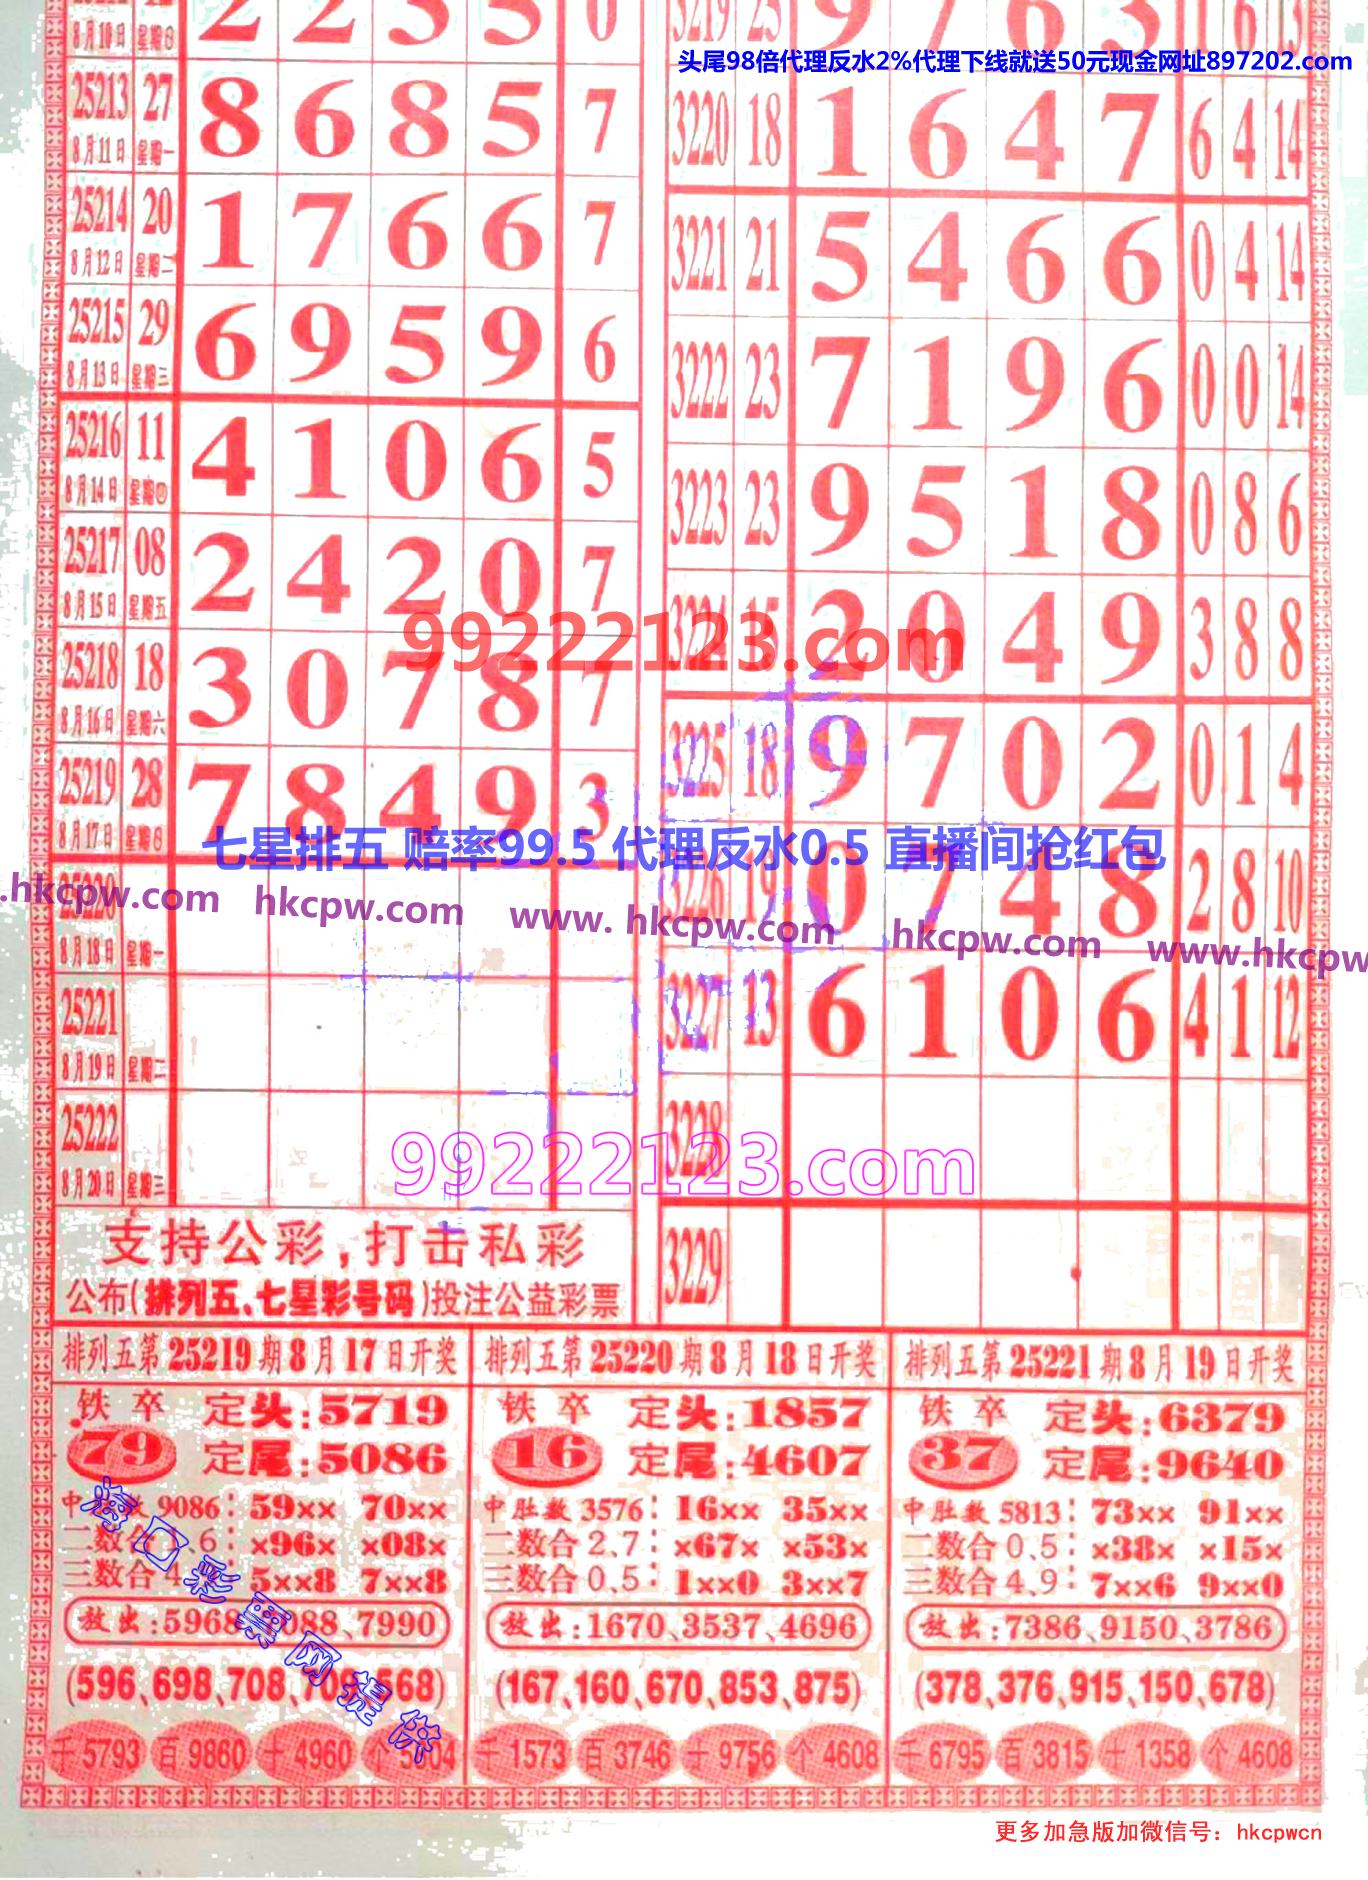 8月10日 星期日 2 2 3 5 0
3219 25 9 7 6 3 1 6 13
头尾98倍代理反水2%代理下线就送50元现金网址897202.com
25213 27 8 6 8 5 7
8月11日 星期一
3220 18 1 6 4 7 6 4 14
25214 20 1 7 6 6 7
8月12日 星期二
3221 21 5 4 6 6 0 4 14
25215 29 6 9 5 9 6
8月13日 星期三
3222 23 7 1 9 6 0 0 14
25216 11 4 1 0 6 5
8月14日 星期四
3223 23 9 5 1 8 0 8 6
25217 08 2 4 2 0 7
8月15日 星期五
3224 15 2 0 4 9 3 8 8
99222123.com
25218 18 3 0 7 8 7
8月16日 星期六
3225 18 9 7 0 2 0 1 4
25219 28 7 8 4 9 3
8月17日 星期日
七星排五 赔率99.5 代理反水0.5 直播间抢红包
3226 19 0 7 4 8 2 8 10
.hkcpw.com hkcpw.com www. hkcpw.com hkcpw.com www.hkcpw
25220
8月18日 星期一
3227 13 6 1 0 6 4 1 12
25221
8月19日 星期二
3228
25222
8月20日 星期三
99222123.com
3229
支持公彩,打击私彩
公布(排列五、七星彩号码)投注公益彩票
排列五第25219期8月17日开奖
铁卒 定头:5719
79 定尾:5086
9086: 59×× 70××
二数合 6: ×96× ×08×
三数合4 5××8 7××8
放出:5968 088,7990
(596,698,708,70 568)
千5793 百9860 十4960 个5 04
排列五第25220期8月18日开奖
铁卒 定头:1857
16 定尾:4607
中肚数3576: 16×× 35××
二数合2,7: ×67× ×53×
三数合0,5: 1××0 3××7
放出:1670,3537,4696
(167,160,670,853,875)
千1573 百3746 十9756 个4608
排列五第25221期8月19日开奖
铁卒 定头:6379
37 定尾:9640
中肚数5813: 73×× 91××
二数合0,5: ×38× ×15×
三数合4,9: 7××6 9××0
放出:7386,9150,3786
(378,376,915,150,678)
千6795 百3815 十1358 个4608
海口彩票网提供
更多加急版加微信号：hkcpwcn